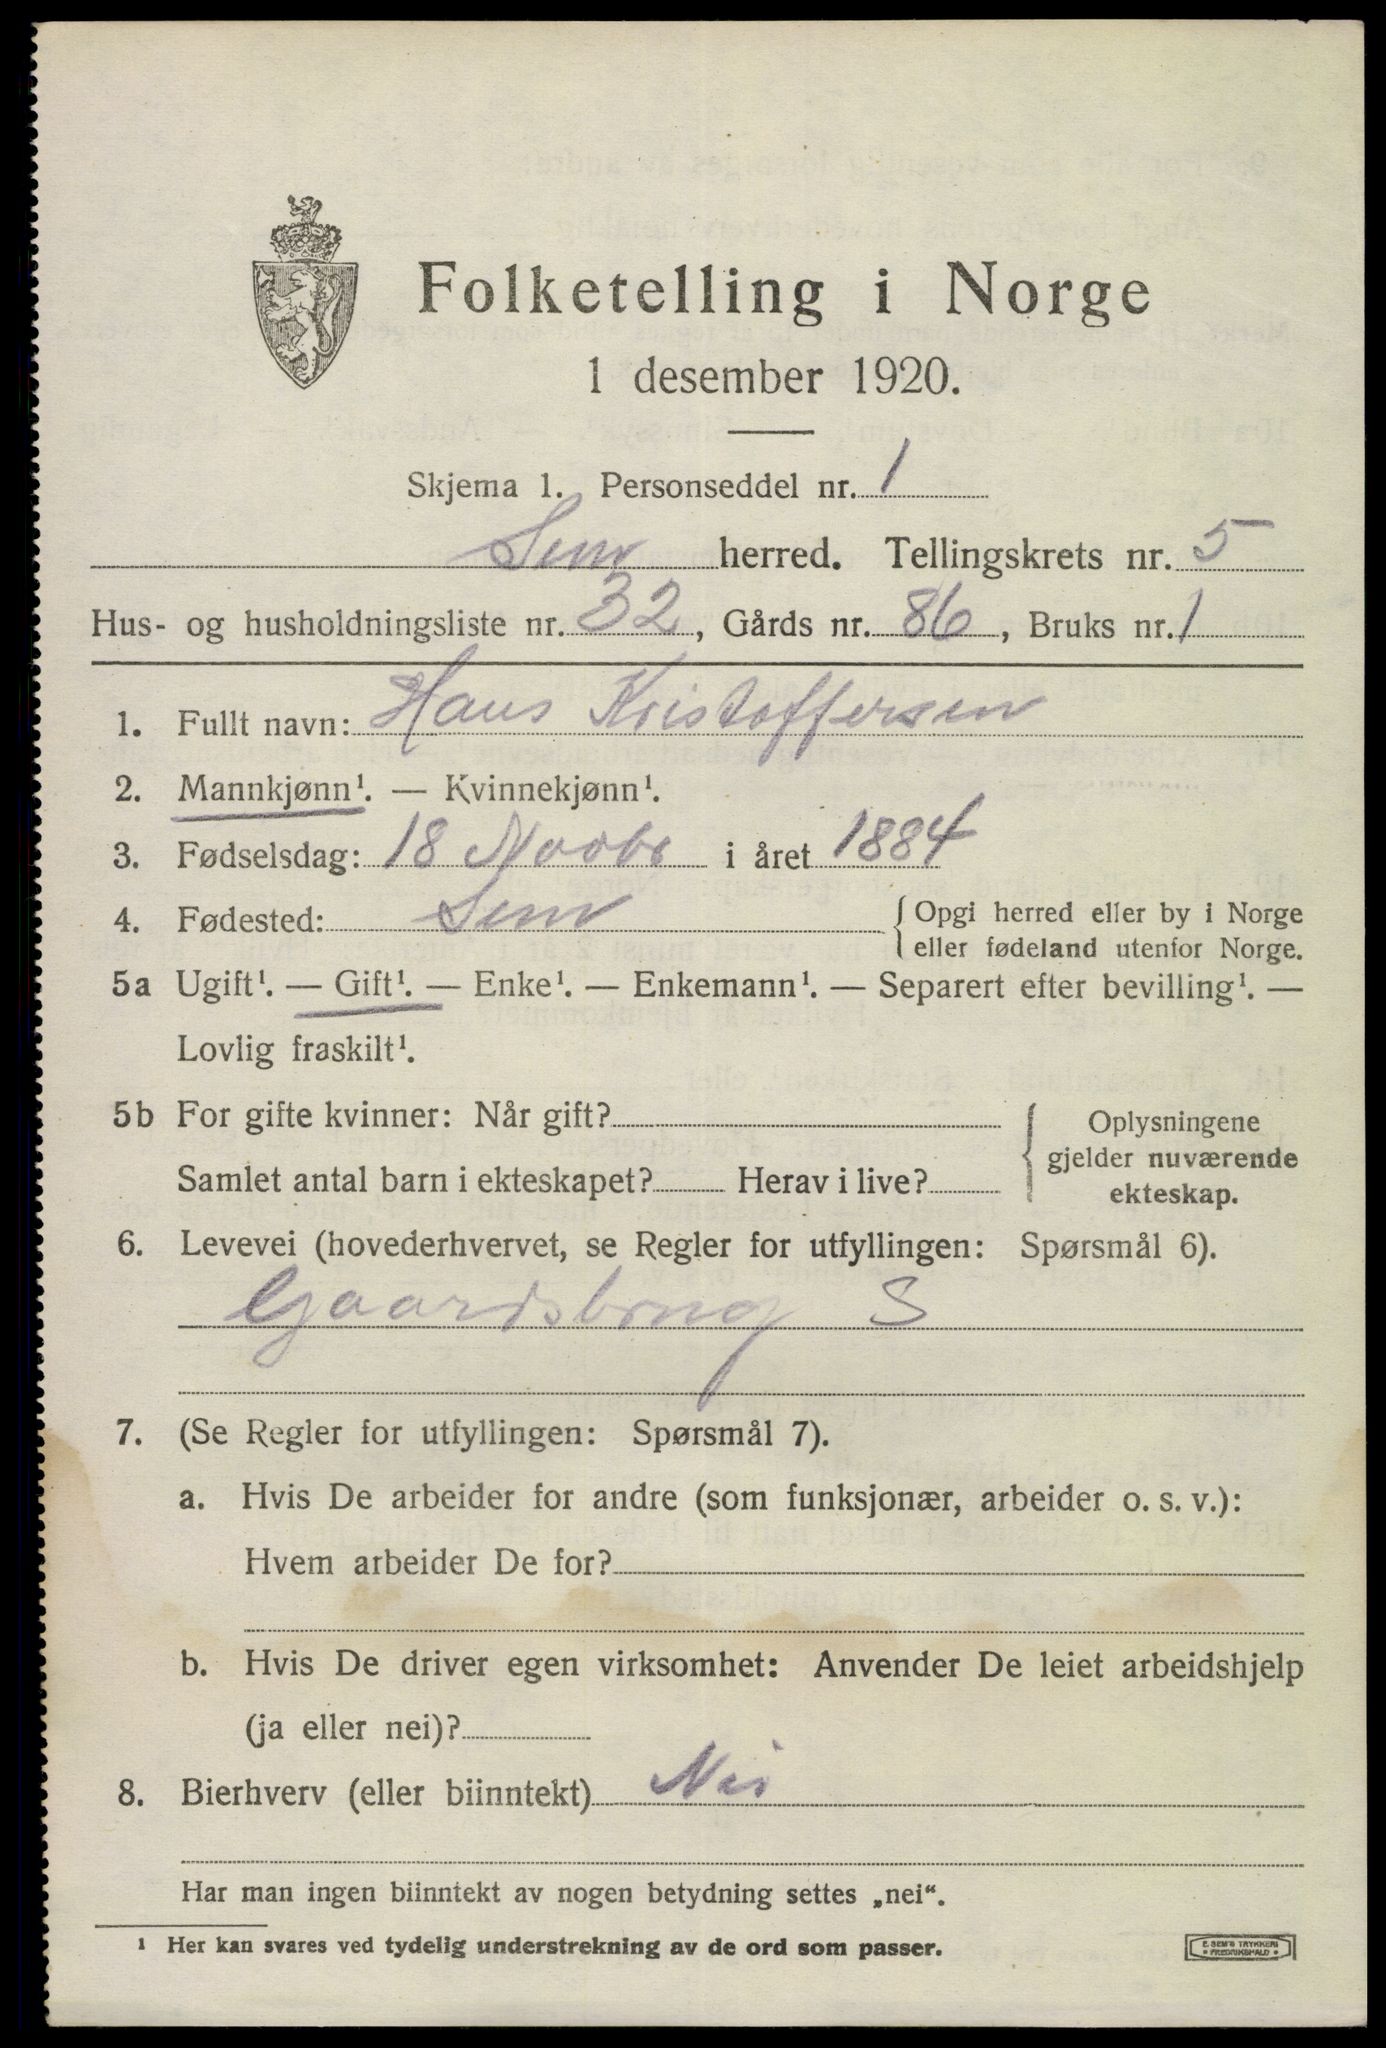 Folketelling i Norge
1 desember 1920.
Skjema 1. Personseddel nr. 1
Sem herred. Tellingskrets nr. 5
Hus- og husholdningsliste nr. 32, Gårds nr. 86, Bruks nr. 1
1. Fullt navn: Hans Kristoffersen
2. Mannkjønn¹. — Kvinnekjønn¹.
3. Fødselsdag: 18 Novbr i året 1884
4. Fødested: Sem { Opgi herred eller by i Norge
eller fødeland utenfor Norge.
5a Ugift¹. — Gift¹. — Enke¹. — Enkemann¹. — Separert efter bevilling¹. —
Lovlig fraskilt¹.
5b For gifte kvinner: Når gift?
Samlet antal barn i ekteskapet? Herav i live?
{ Oplysningene
gjelder nuværende
ekteskap.
6. Levevei (hovederhvervet, se Regler for utfyllingen: Spørsmål 6).
Gaardsbrug S
7. (Se Regler for utfyllingen: Spørsmål 7).
a. Hvis De arbeider for andre (som funksjonær, arbeider o. s. v.):
Hvem arbeider De for?
b. Hvis De driver egen virksomhet: Anvender De leiet arbeidshjelp
(ja eller nei)?
8. Bierhverv (eller biinntekt) Nei
Har man ingen biinntekt av nogen betydning settes „nei“.
¹ Her kan svares ved tydelig understrekning av de ord som passer.
E. SEM'S TRYKKERI
• FREDRIKSHALD •